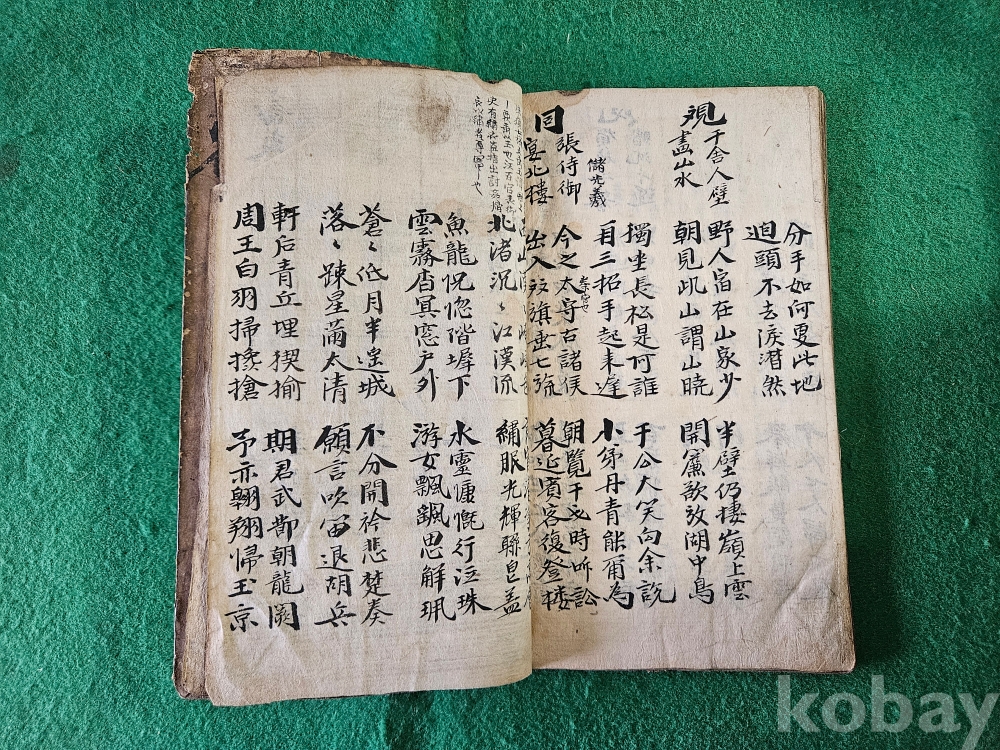 分手如何更此地
迴頭不去淚潸然
觀于舍人壁
畵山水
野人宿在山家少
朝見此山謂山曉
半壁仍棲嶺上雲
開簾欲放湖中鳥
獨坐長松是阿誰
再三招手起来遲
于公大笑向余說
小弟丹青能爾為
同張侍御
宴北樓
儲光羲
今之太守古諸侯
出入旌旗垂七旒
朝覽干戈時听訟
暮延賓客復登樓
北渚沉〻江漢流
繡服光輝聯皂盖
魚龍怳惚階墀下
雲霧杳冥窓户外
水靈慷慨行泣珠
游女飄飄思解珮
蒼〻低月半遙城
落〻踈星滿太清
不分開衿悲楚奏
願言吹笛退胡兵
軒后青丘埋猰㺄
周王白羽掃攙搶
期君武節朝龍闕
予亦翱翔歸玉京
kobay